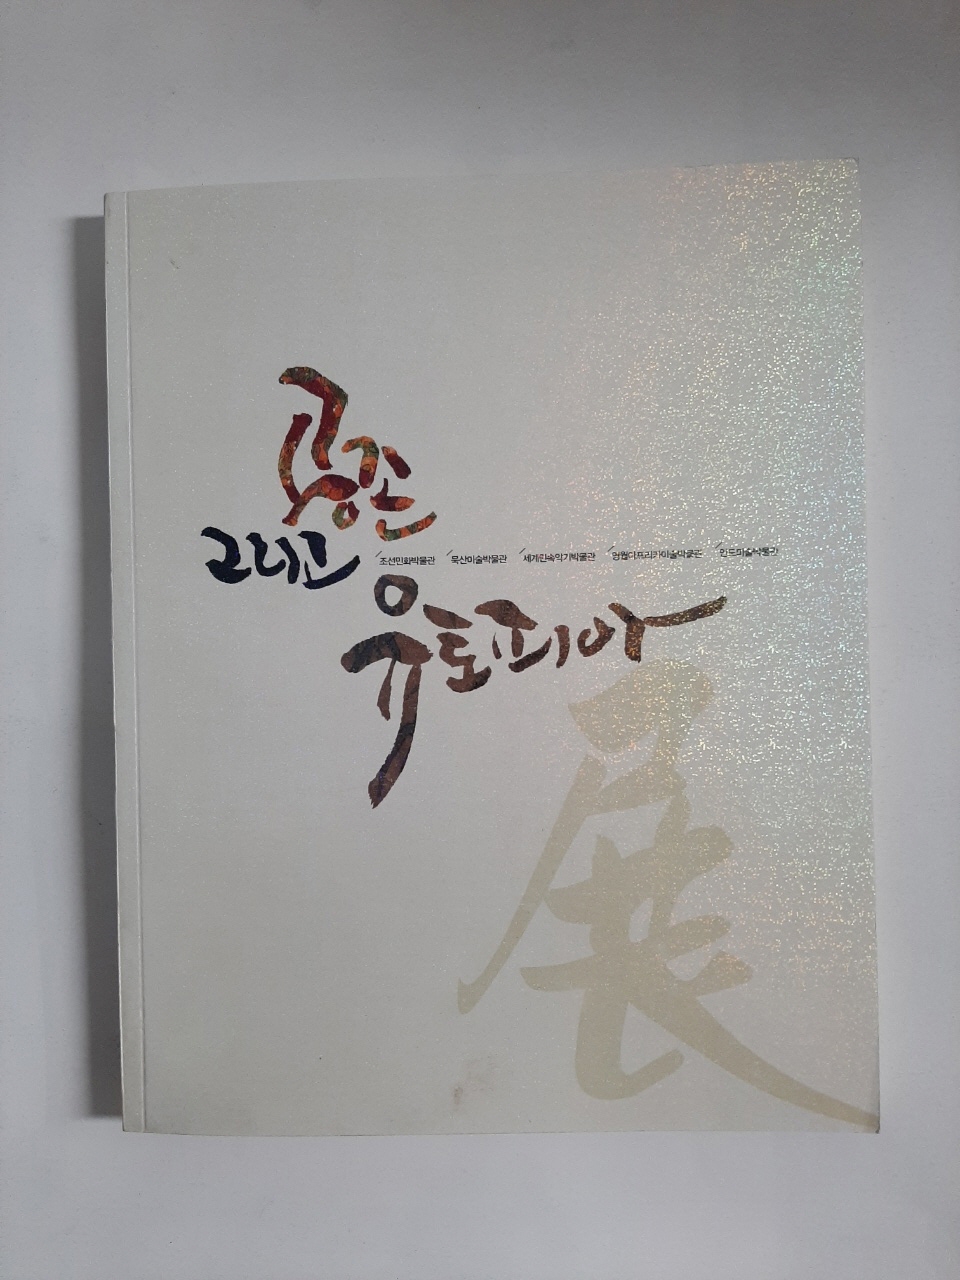 공존
그리고
조선민화박물관 묵산미술박물관 세계민속악기박물관 영월아프리카미술박물관 인도미술박물관
유토피아
展